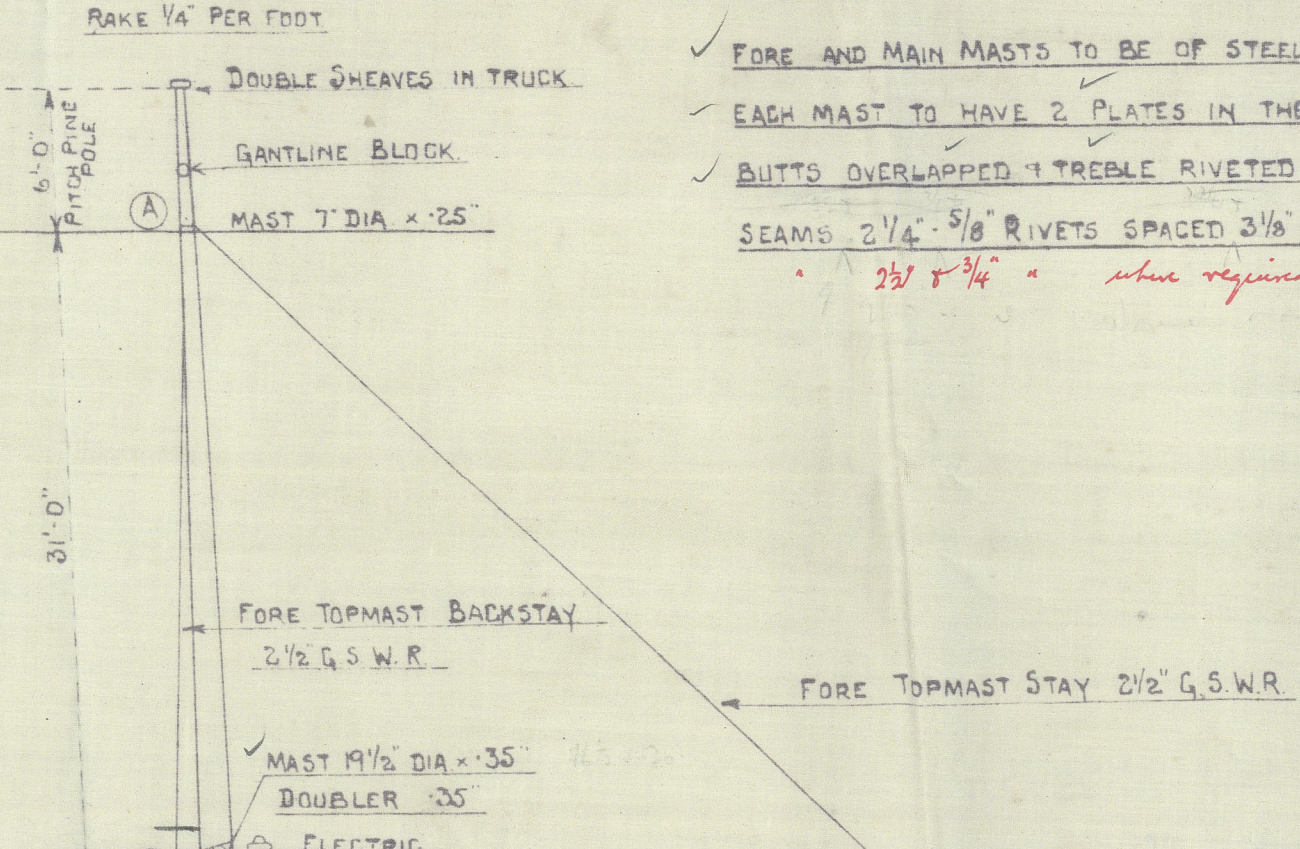 RAKE 1/4" PER FOOT
DOUBLE SHEAVES IN TRUCK
6'-0"
PITCH PINE
POLE
GANTLINE BLOCK.
A
MAST 7" DIA. × .25"
31'-0"
FORE TOPMAST BACKSTAY
2 1/2" G.S.W.R.
MAST 19 1/2" DIA. × .35"
DOUBLER .35"
ELECTRIC
FORE AND MAIN MASTS TO BE OF STEEL
EACH MAST TO HAVE 2 PLATES IN THE
BUTTS OVERLAPPED & TREBLE RIVETED
SEAMS 2 1/4" - 5/8" RIVETS SPACED 3 1/8"
" 2 1/2" & 3/4" " where required
FORE TOPMAST STAY 2 1/2" G.S.W.R.